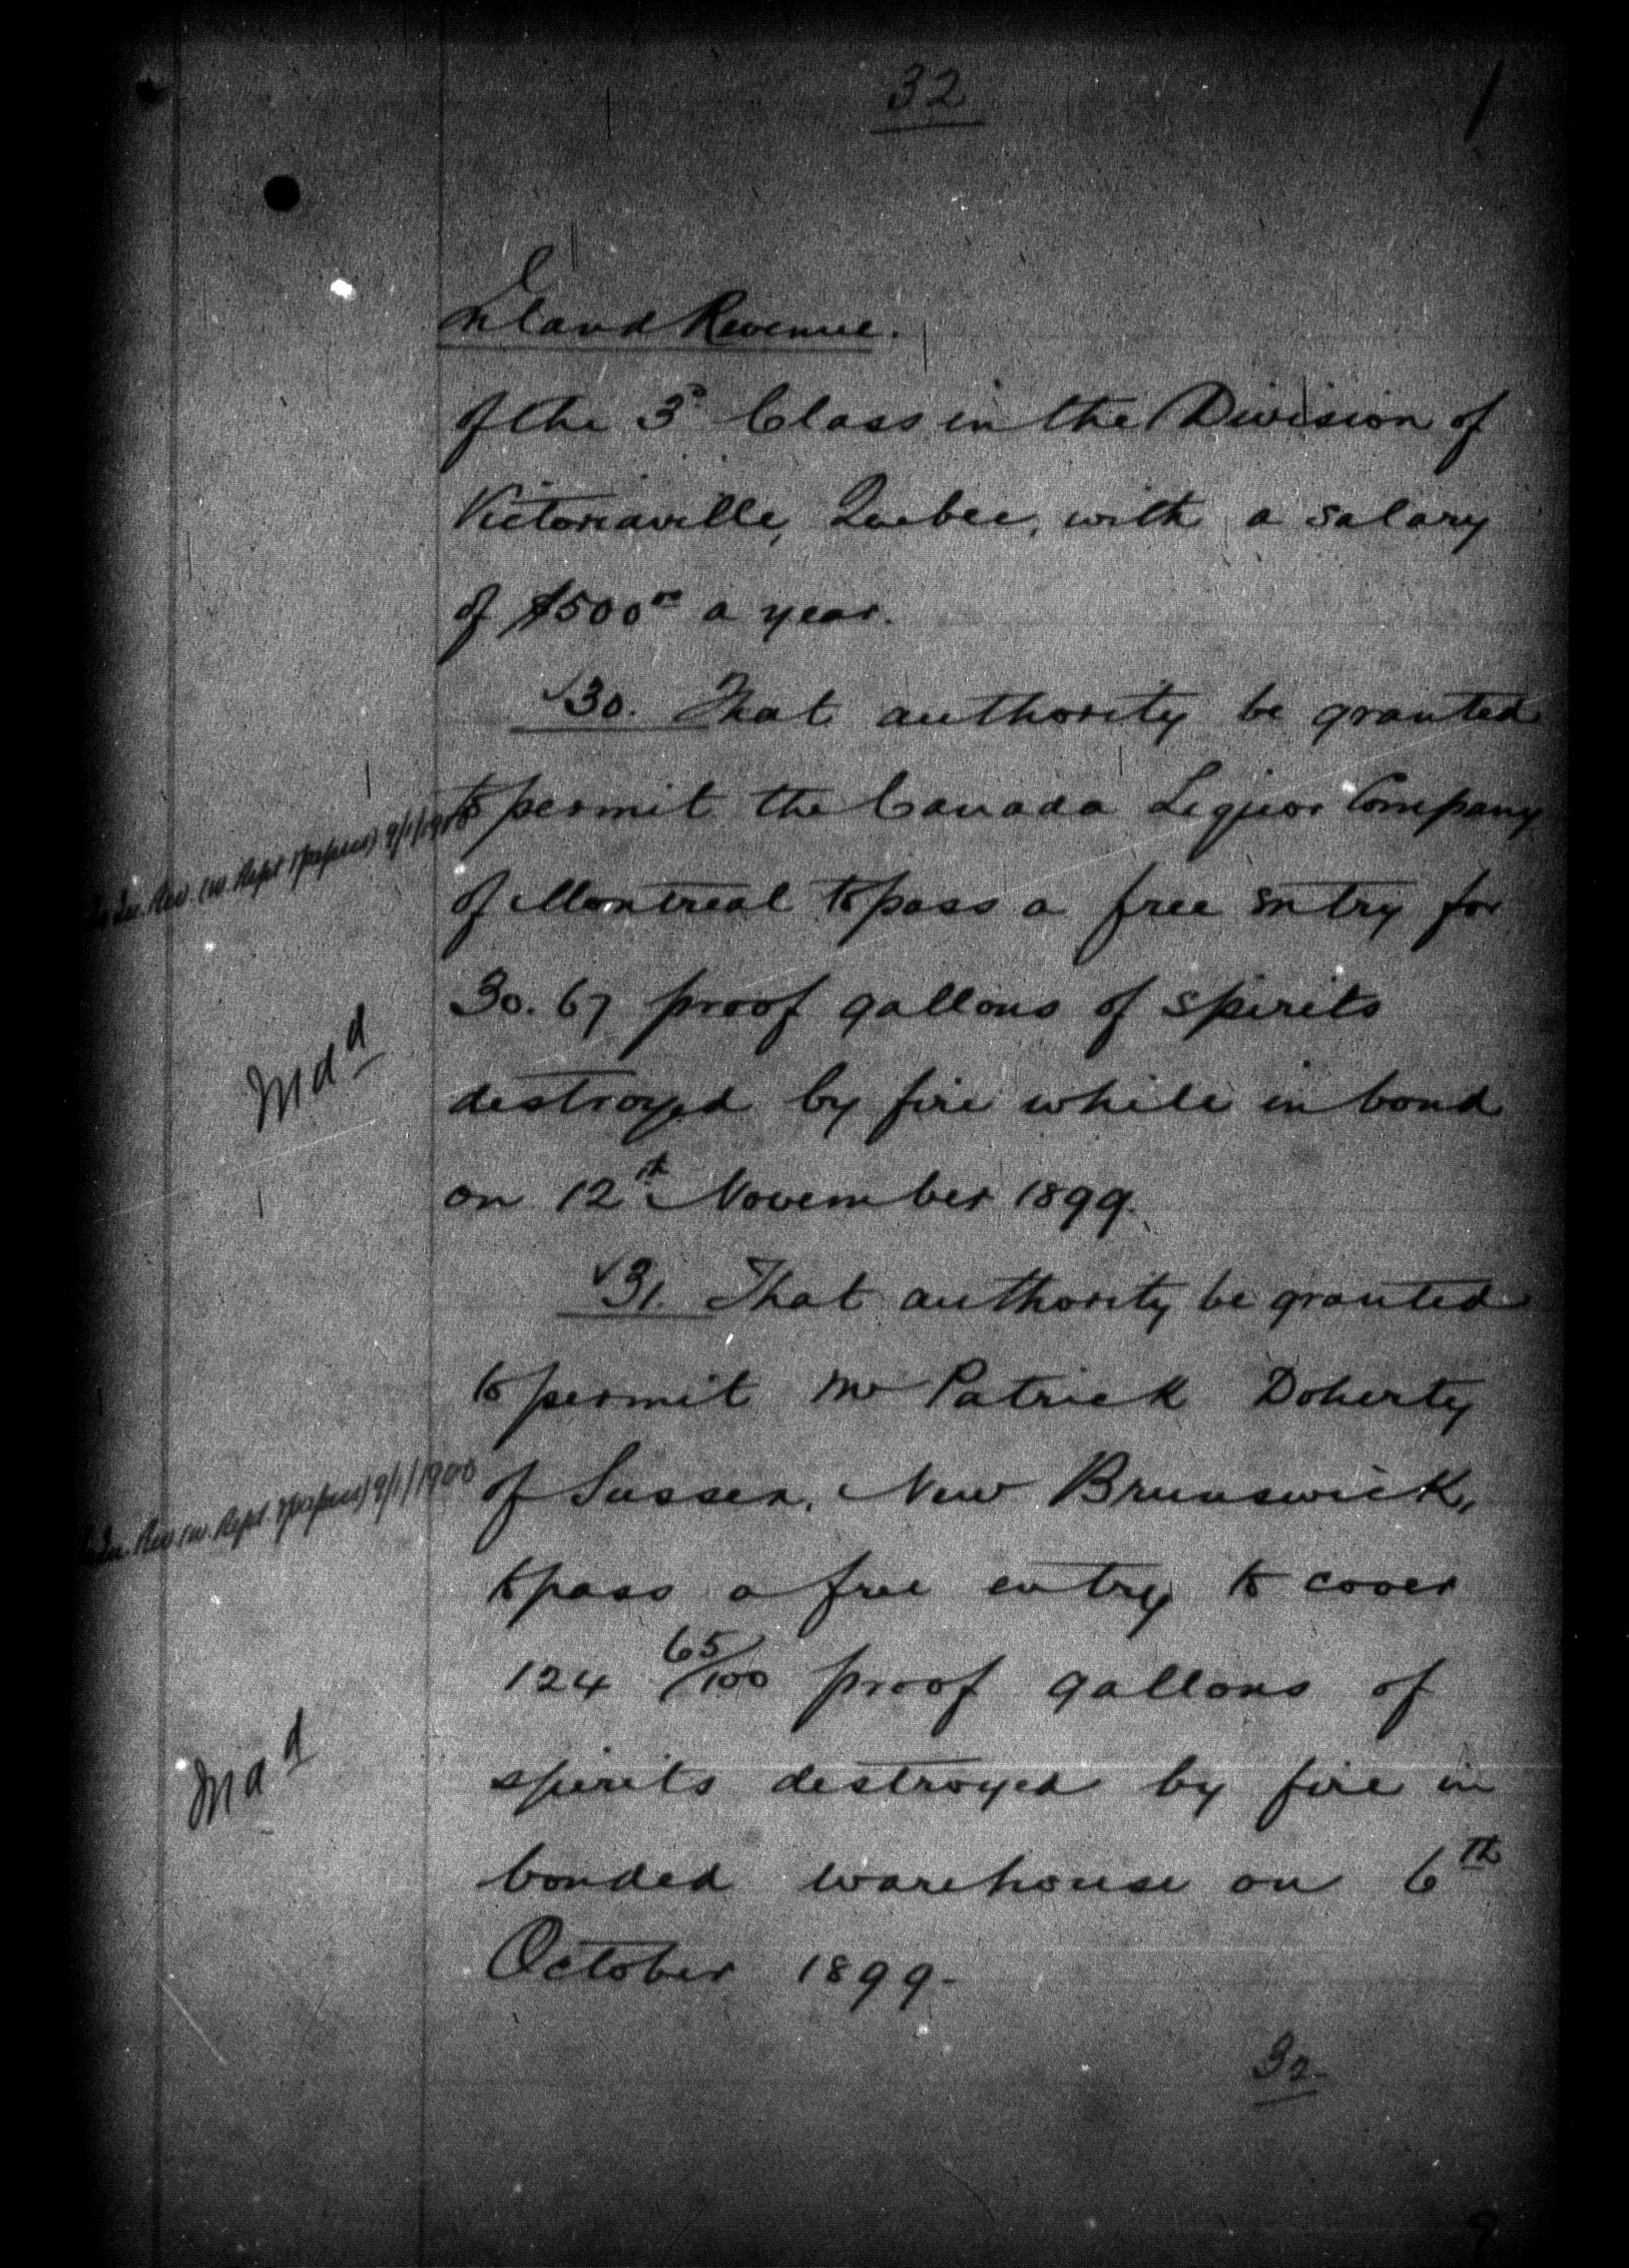 32
Inland Revenue.
of the 3d Class in the Division of
Victoriaville, Quebec, with a salary
of $500 00 a year.
30. That authority be granted
to permit the Canada Liquor Company
In. Rev. (w. Rept. & papers) 9/1/1900
of Montreal to pass a free entry for
30.67 proof gallons of spirits
destroyed by fire while in bond
on 12th November 1899.
31. That authority be granted
to permit Mr Patrick Doherty
In. Rev. (w. Rept. & papers) 9/1/1900
of Sussex, New Brunswick,
to pass a free entry to cover
124 65/100 proof gallons of
spirits destroyed by fire in
bonded warehouse on 6th
October 1899-
32-